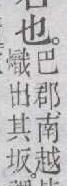 也。
巴郡、南越
熾出其坂。